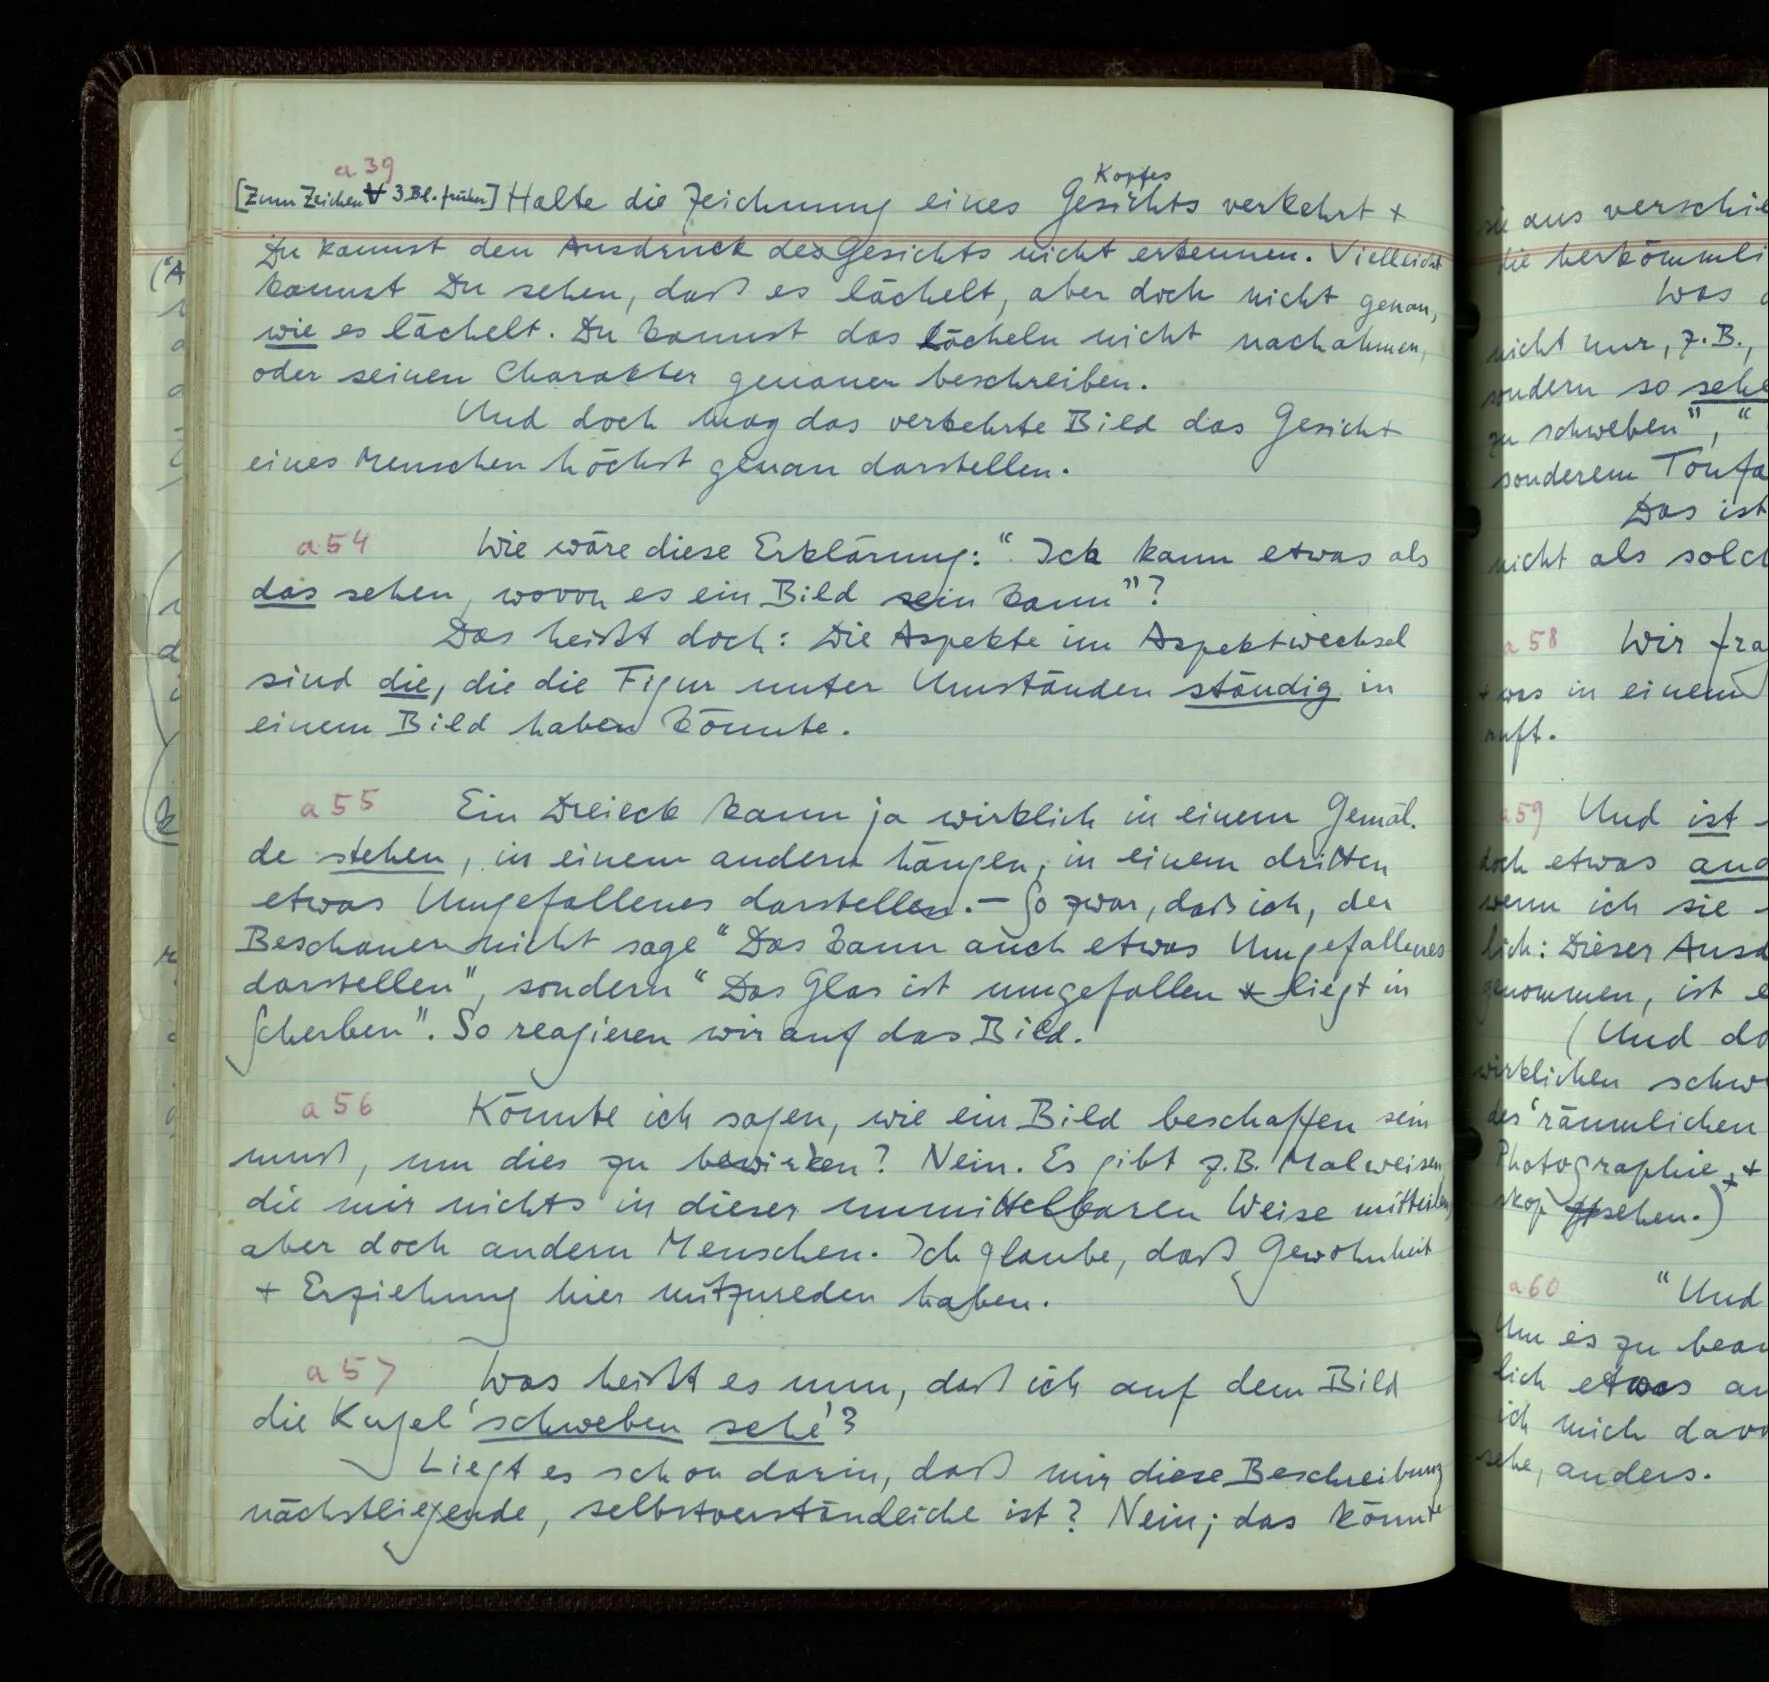 a 39
Kopfes
[Zum Zeichen ∀ 3 Bl. früher] Halte die Zeichnung eines Gesichts verkehrt +
Du kannst den Ausdruck des Gesichts nicht erkennen. Vielleicht
kannst Du sehen, daß es lächelt, aber doch nicht genau,
wie es lächelt. Du kannst das Lächeln nicht nachahmen,
oder seinen Charakter genauer beschreiben.
Und doch mag das verkehrte Bild das Gesicht
eines Menschen höchst genau darstellen.
a 54 Wie wäre diese Erklärung: “Ich kann etwas als
das sehen, wovon es ein Bild sein kann”?
Das heißt doch: Die Aspekte im Aspektwechsel
sind die, die die Figur unter Umständen ständig in
einem Bild haben könnte.
a 55 Ein Dreieck kann ja wirklich in einem Gemäl-
de stehen, in einem andern hängen, in einem dritten
etwas Umgefallenes darstellen. – So zwar, daß ich, der
Beschauer nicht sage “Das kann auch etwas Umgefallenes
darstellen”, sondern “Das Glas ist umgefallen + liegt in
Scherben”. So reagieren wir auf das Bild.
a 56 Könnte ich sagen, wie ein Bild beschaffen sein
muß, um dies zu bewirken? Nein. Es gibt z.B. Malweisen,
die mir nichts in dieser unmittelbaren Weise mitteilen,
aber doch andern Menschen. Ich glaube, daß Gewohnheit
+ Erziehung hier mitzureden haben.
a 57 Was heißt es nun, daß ich auf dem Bild
die Kugel ‘schweben sehe’?
Liegt es schon darin, daß mir diese Beschreibung
nächstliegende, selbstverständliche ist? Nein; das könnte
sie aus verschie
die herkömmli
Was
nicht nur, z.B.,
sondern so sehe
zu schweben”, “
sonderem Tonfa
Das ist
nicht als solch
a 58 Wir fra
was in einem
ruft.
a 59 Und ist
doch etwas and
wenn ich sie
lich: Dieser Ausd
genommen, ist
(Und do
wirklichen schw
des ‘räumlichen
Photographie, +
skop sehen.)
a 60 “Und
Um es zu bean
lich etwas an
ich mich davo
sehe, anders.